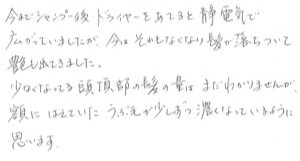 今までシャンプー後 ドライヤーをあてると 静電気で
広がっていましたが、今は それもなくなり 髪が 落ちついて
艶も出てきました。
少なくなってる 頭頂部の髪の量は まだわかりませんが、
額に はえていた うぶ毛が少しずつ 濃くなっているように
思います。